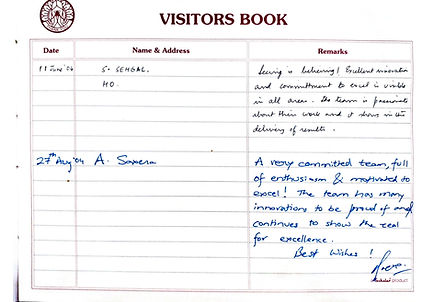 VISITORS BOOK
Date Name & Address Remarks
11 June '04 S. SEHGAL. Seeing is believing! Excellent innovation
HO. and commitment to excel is visible
in all areas. The team is passionate
about their work and it shows in the
delivery of results.
27th Aug '04 A. Saxena A very committed team, full
of enthusiasm & motivated to
excel! The team has many
innovations to be proud of and
continues to show the zeal
for excellence.
Best Wishes!
product